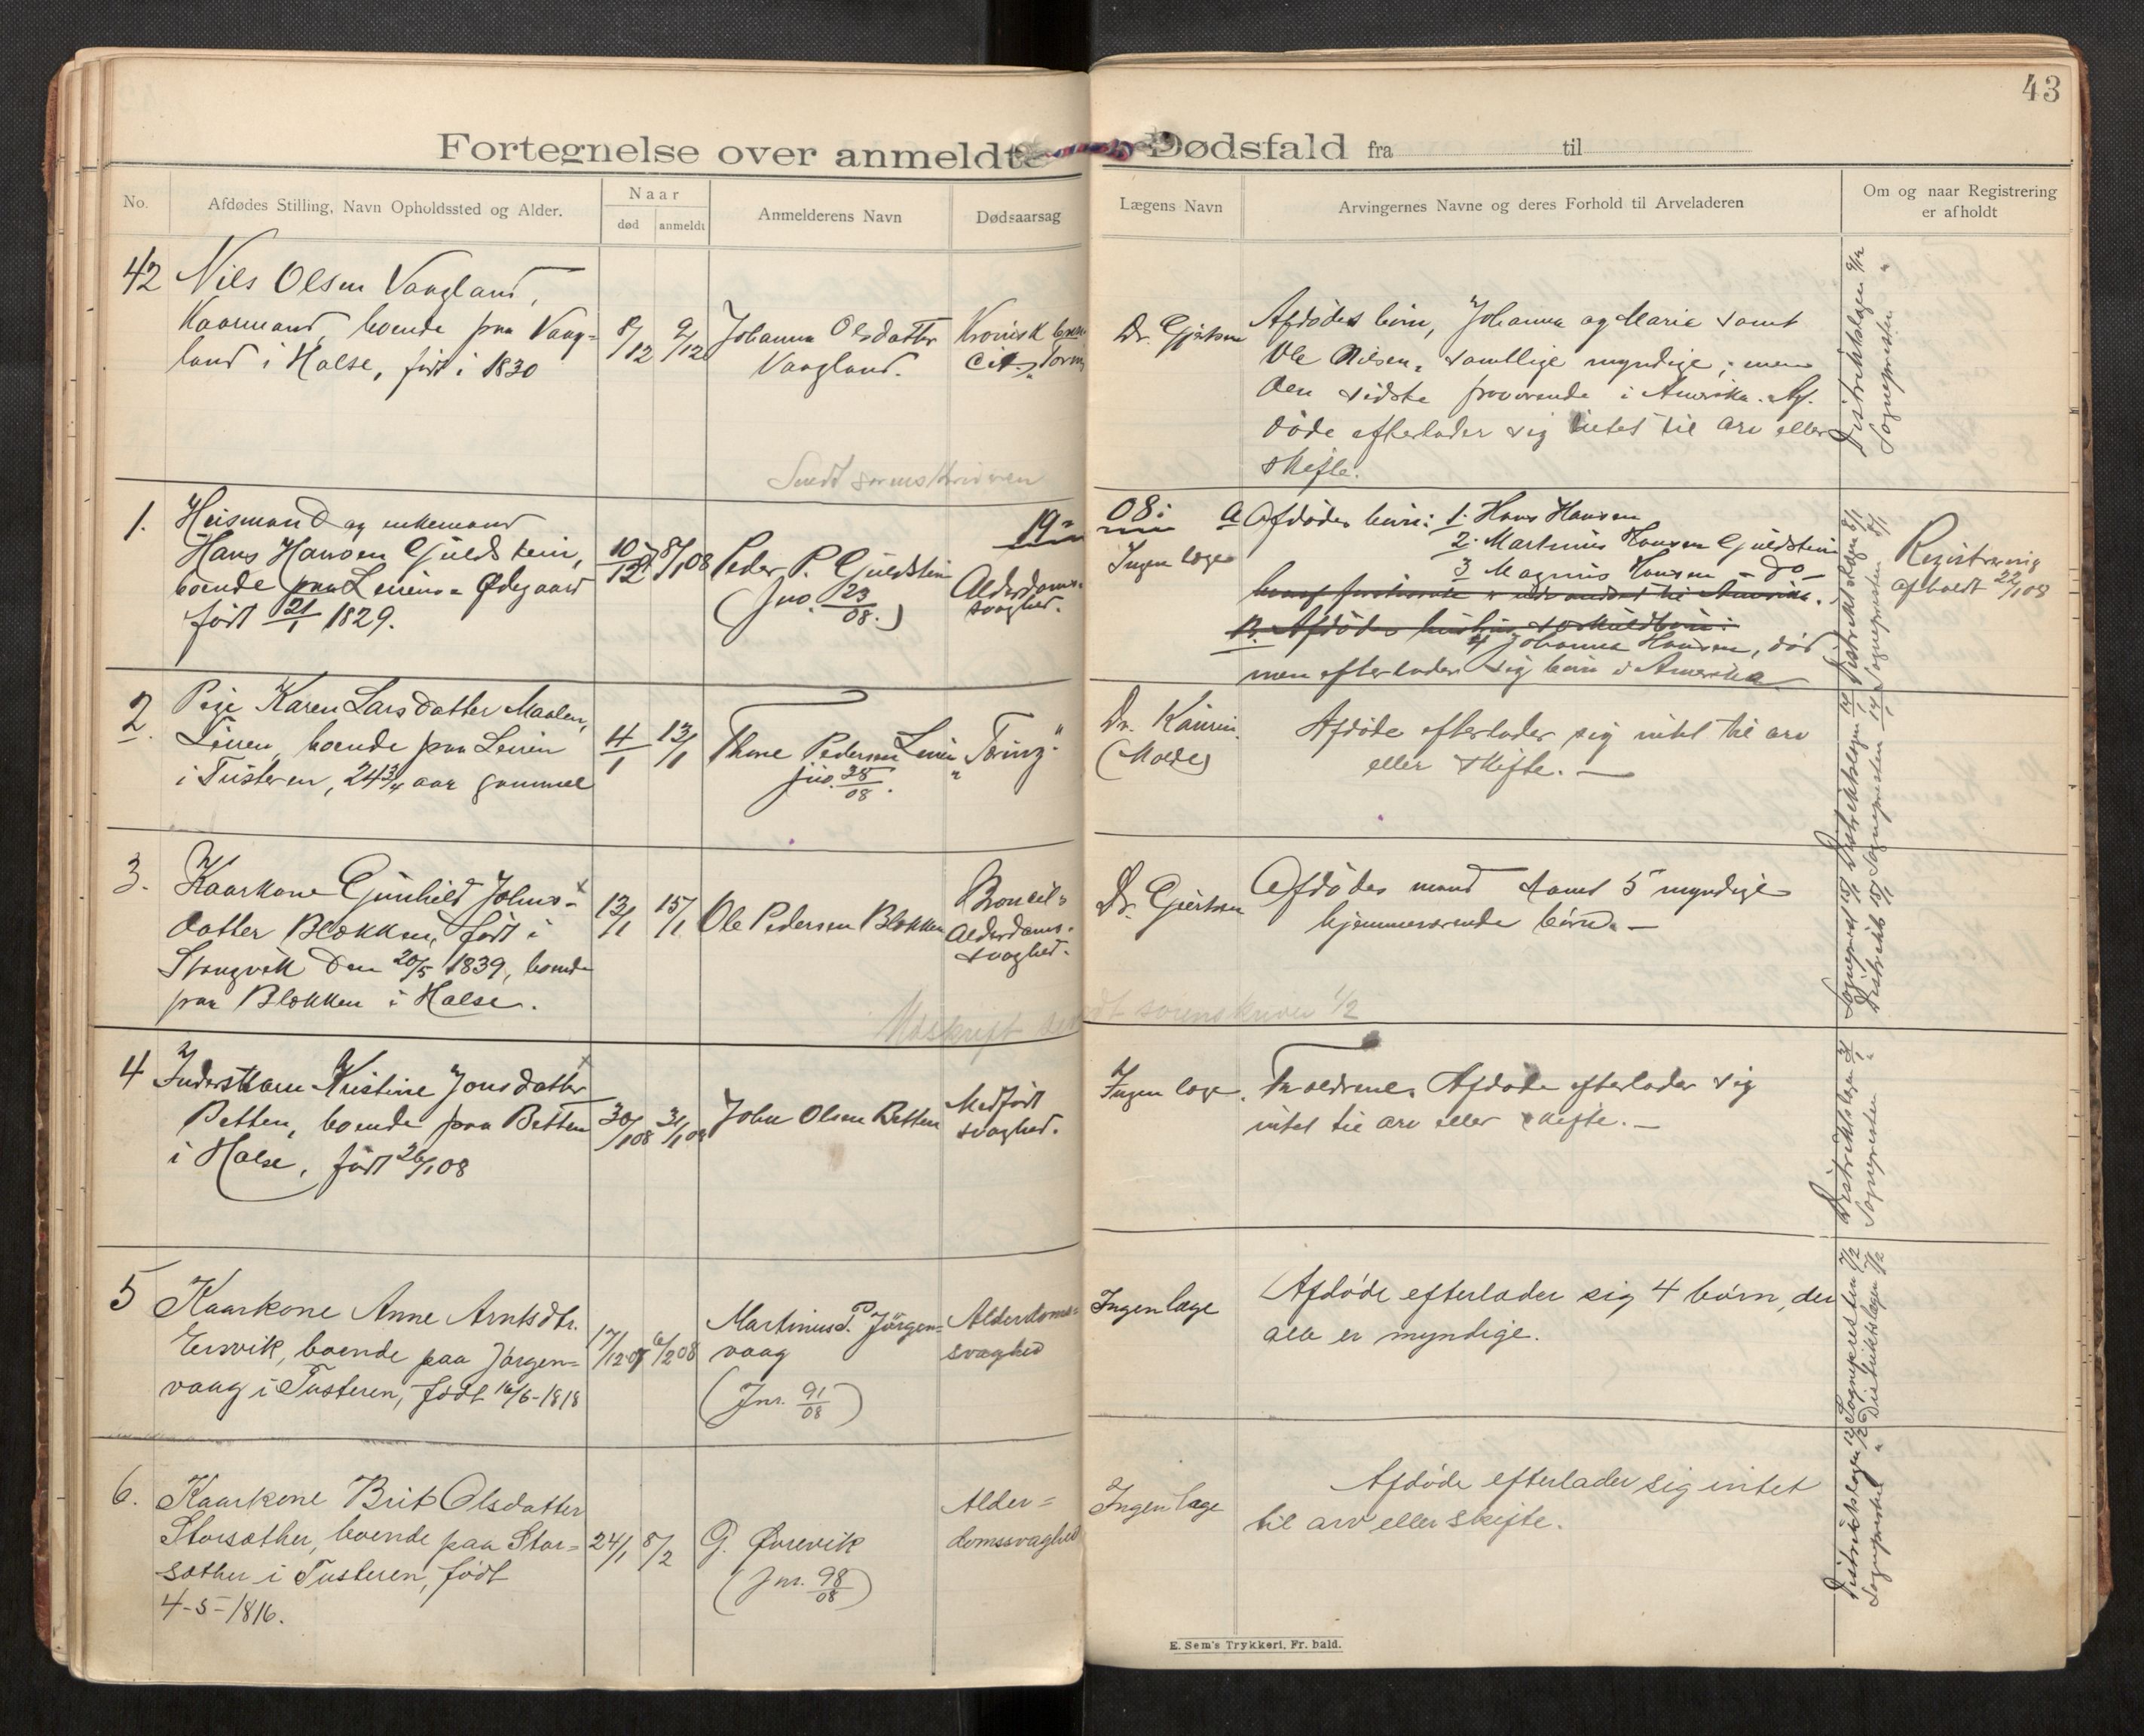 43
Fortegnelse over anmeldte Dødsfald fra til
No.
Afdødes Stilling, Navn Opholdssted og Alder.
Naar
død
anmeldt
Anmelderens Navn
Dødsaarsag
Lægens Navn
Arvingernes Navne og deres Forhold til Arveladeren
Om og naar Registrering
er afholdt
42 Nils Olsen Vaagland,
Kaarmand, boende paa Vaag-
land i Halse, født i 1830
8/12
9/12
Johanna Olsdatter
Vaagland.
Kronisk
Dr. Gjertsen
Afdødes børn, Johanna og Marie samt
Ole Nilsen, samtlige myndige; men
den sidste fraværende i Amerika. Af-
døde efterlader sig intet til arv eller
skifte.
Distriktslægen 9/12
Sognepresten "
Sendt sorenskriveren
19-
08:
1. Huismand og enkemand
Hans Hansen Gjuldstein,
boende paa Leirens Ødegaard
født 21/1 1829.
8/1 08
Peder P. Gjuldstein
(Jno. 23/08.)
Alderdoms-
svaghed.
Ingen læge
a Afdødes børn: 1. Hans Hansen
2. Martinus Hansen Gjuldstein
3 Magnus Hansen - do -
B. Afdødes hustrus særkuldbørn:
4 Johanna Hansen, død
men efterlader sig børn i Amerika
Registrering
afholdt 22/1 08
2. Pige Karen Larsdatter Maalen,
boende paa Leiren
i Tusteren, 24 3/4 aar gammel
4/1
13/1
Thore Pedersen Leiren
jno. 38/08.
"Tæring."
Dr. Kaurin.
(Molde)
Afdøde efterlader sig intet til arv
eller skifte. —
3. Kaarkone Gunhild Johns-
datter Blekken, født i
Stangvik den 20/5 1839, boende
paa Blekken i Halse.
13/1
15/1
Ole Pedersen Blekken
Alderdoms-
svaghed.
Dr. Gjertsen
Afdødes mand samt 5 myndige
hjemmeværende børn. —
Udskrift sendt sorenskriver 1/2
4 Inderstbarn Kristine Jonsdatter
Betten, boende paa Betten
i Halse, født 26/1 08
30/1 08
31/1 08
John Olsen Betten
Medfødt
svaghed.
Ingen læge.
Forældrene. Afdøde efterlader sig
intet til arv eller skifte. —
Distriktslægen
Sognepresten "
5 Kaarkone Anne Arntsdtr.
Ersvik, boende paa Jørgen-
vaag i Tusteren, født 16/6-1818
17/12 07
6/2 08
Martinus P. Jørgen-
vaag
(Jnr. 91/08)
Alderdoms-
svaghed
Ingen læge
Afdøde efterlader sig 4 børn, der
alle er myndige.
Sognepresten 7/2
Distriktslægen 7/2
6. Kaarkone Brit Olsdatter
Storsæther, boende paa Stor-
sæther i Tusteren, født
4-5-1816.
24/1
8/2
G. Ørevik
(Jnr. 98/08)
Alder-
domssvaghed
Ingen læge
Afdøde efterlader sig intet
til arv eller skifte.
Distriktslægen 12/2
Sognepresten "
E. Sem's Trykkeri, Fr. hald.